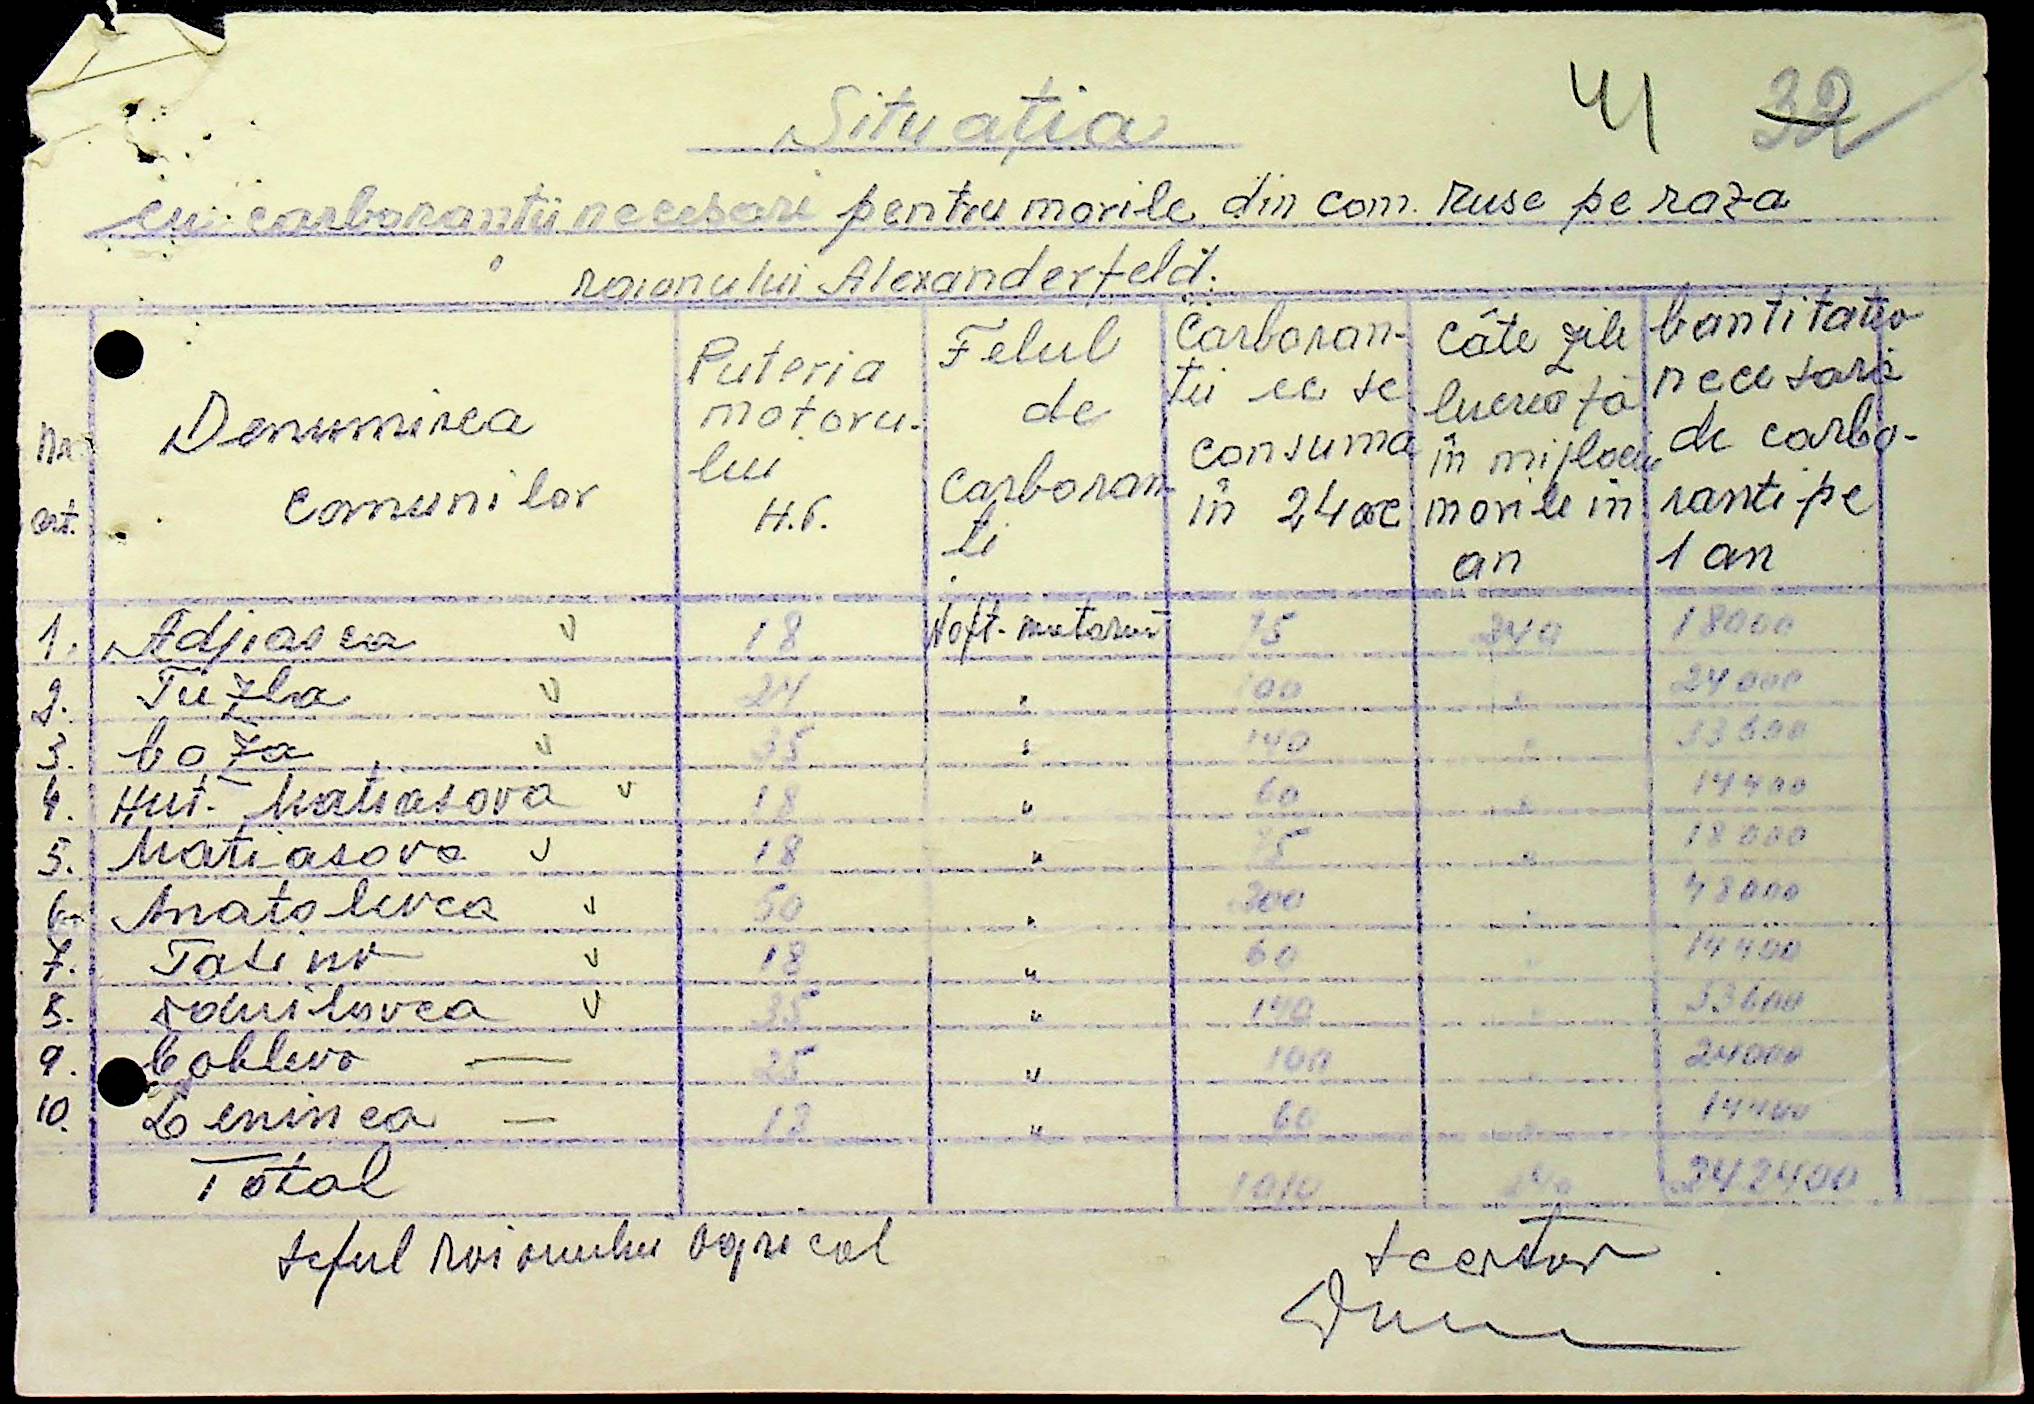 41 32
Situația
cu carboranții necesari pentru morile din com. Ruse pe raza
raionului Alexanderfeld.
Nr. crt.
Denumirea comunilor
Puteria motorului H.P.
Felul de carboranți
Carboranții ce se consumă în 24 ore
Câte zile lucrează în mijlociu morile în an
Cantitatea necesară de carboranți pe 1 an
1. Adjiasca v 18 75 240 18000
2. Tuzla v 24 " 100 " 24000
3. Coza v 35 " 140 " 33600
4. Hut. Matiasova v 18 " 60 " 14400
5. Matiasova v 18 " 75 " 18000
6. Anatolevca v 50 " 200 " 48000
7. Tasino v 18 " 60 " 14400
8. Danilovca v 35 " 140 " 33600
9. Coblevo — 25 " 100 " 24000
10. Leninca — 18 " 60 " 14400
Total 1010 240 242400
Seful raionului agricol